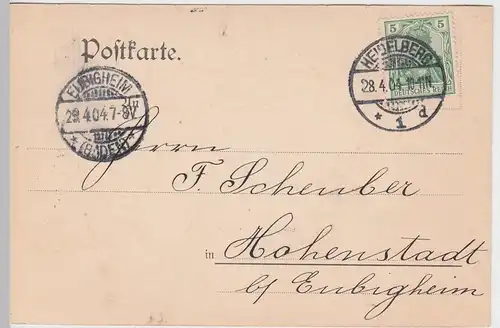 Postkarte.
5 5
DEUTSCHES REICH
HEIDELBERG
28.4.04
* 1 d
EUBIGHEIM
29.4.04.7-8V
* (BADEN) *
Herrn
F. Scheuber
in Hohenstadt
b/ Eubigheim